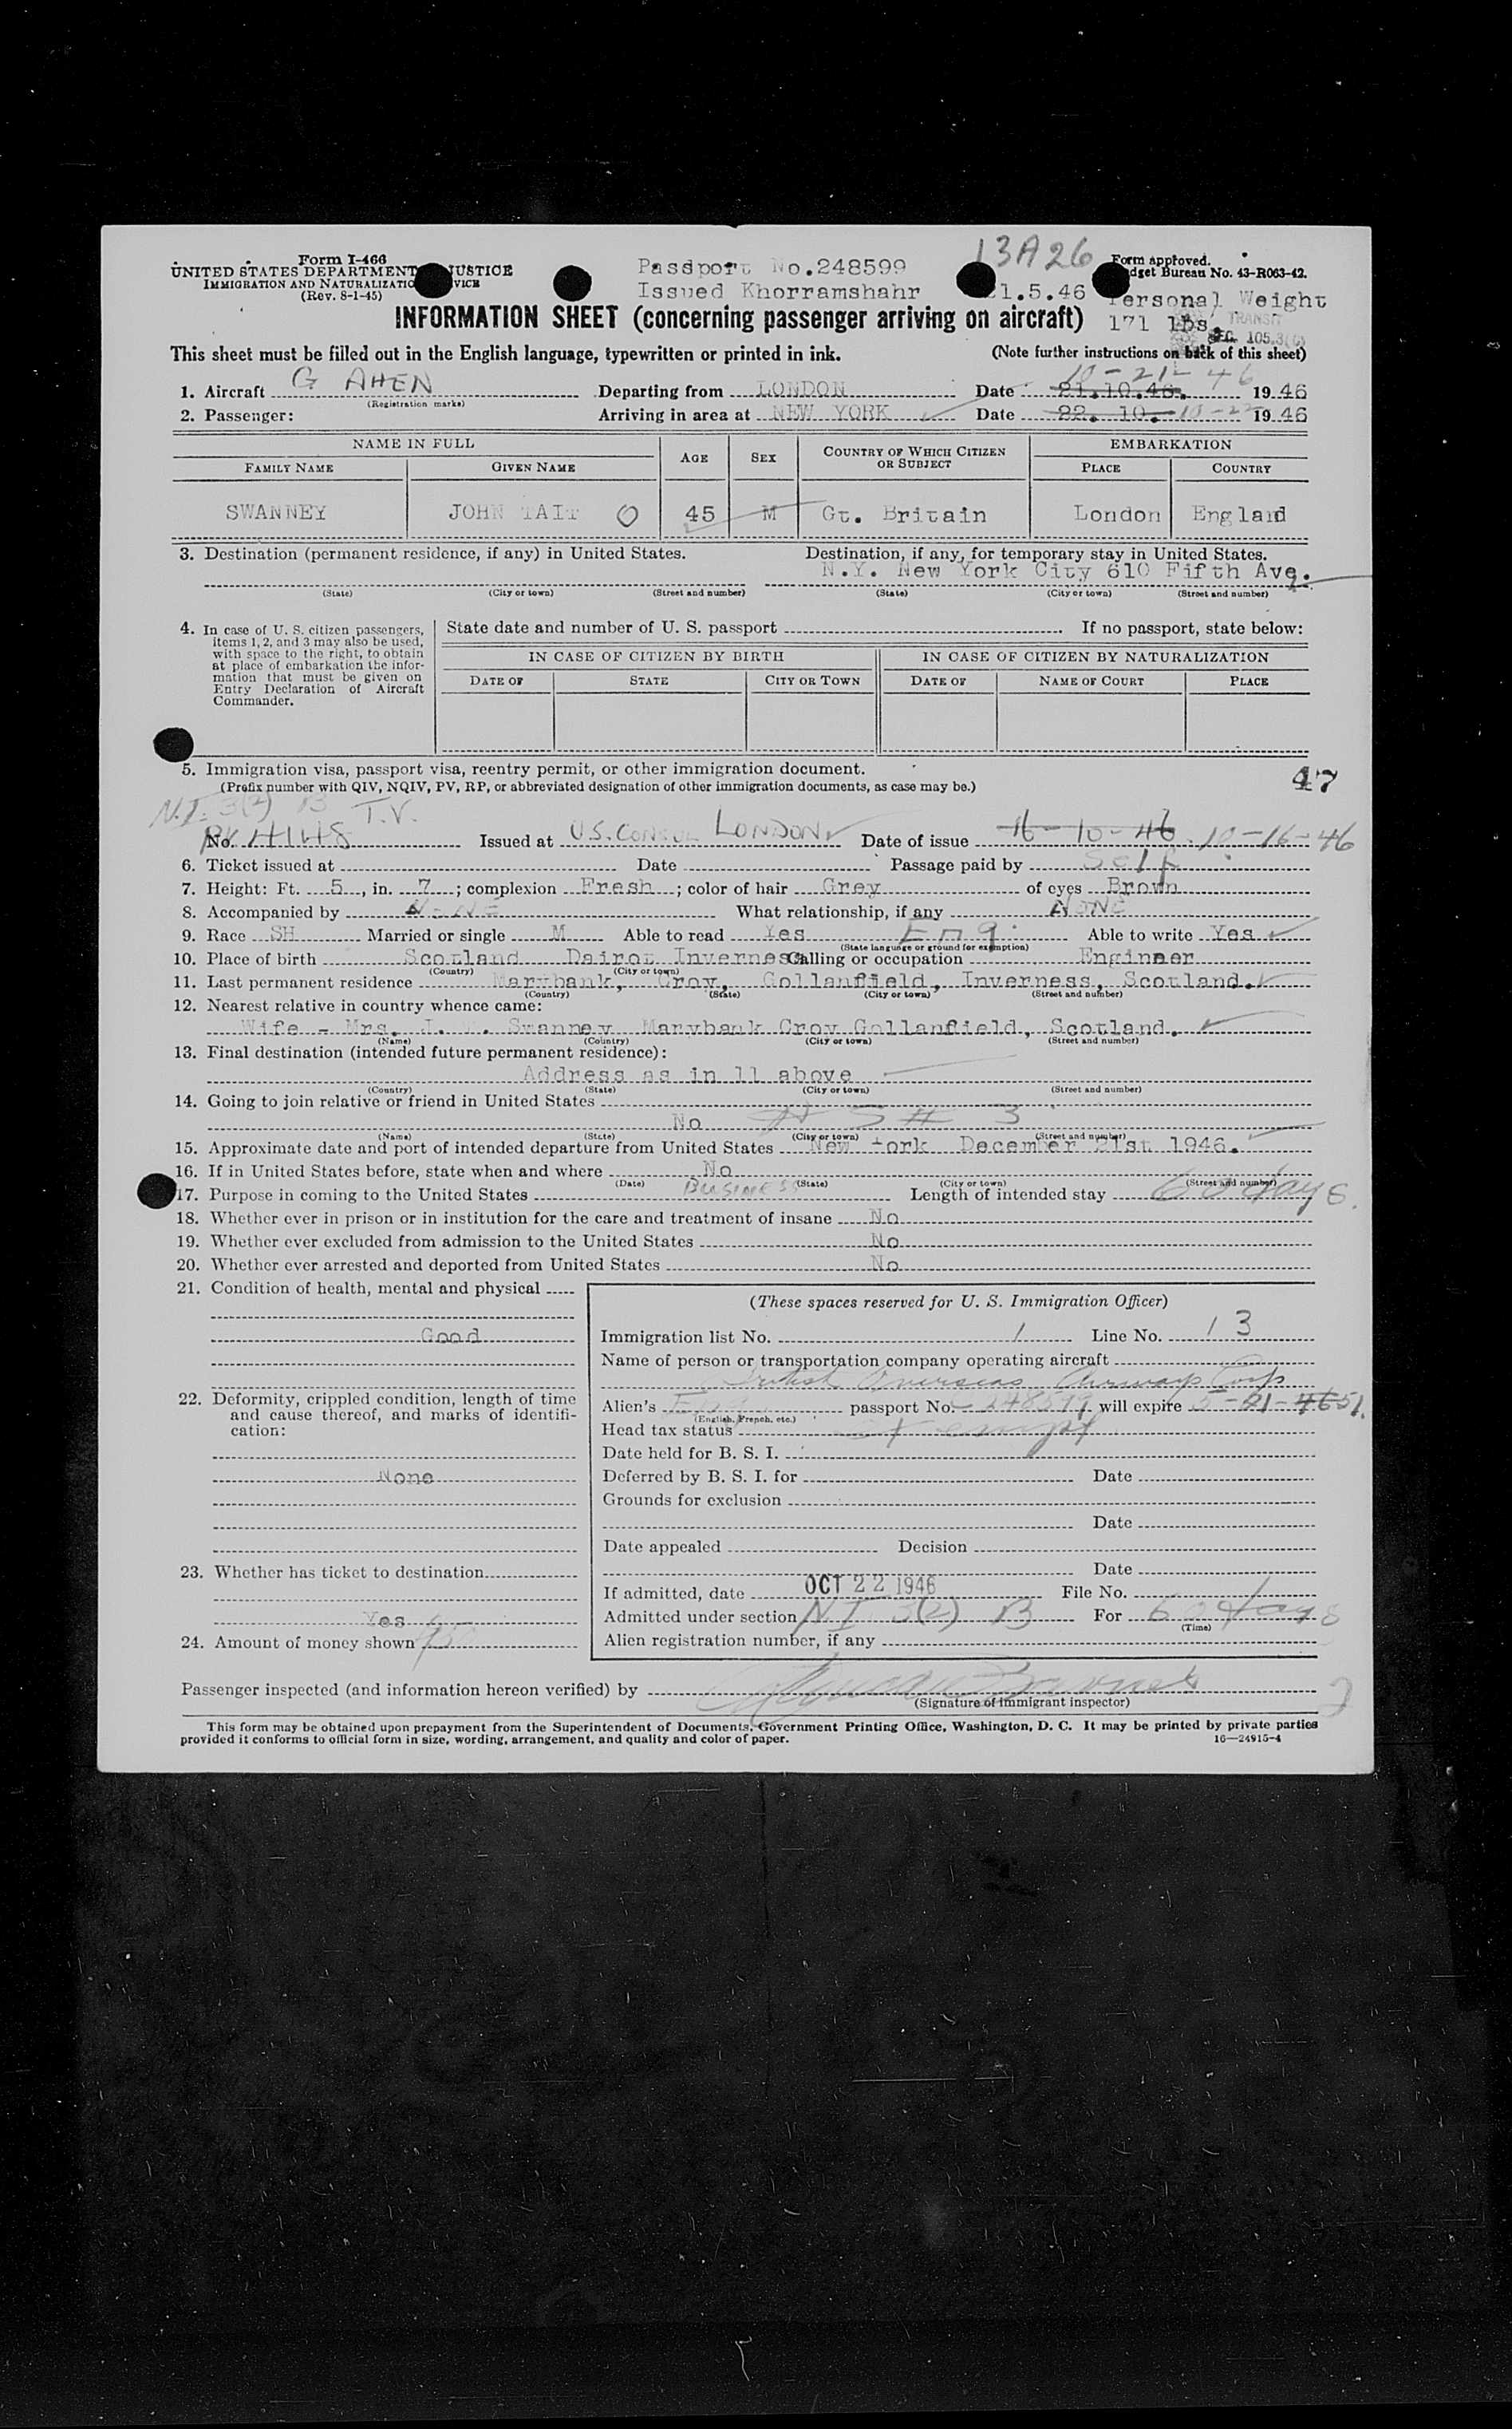 13A26
Form I-466
UNITED STATES DEPARTMENT JUSTICE
IMMIGRATION AND NATURALIZATIO VICE
(Rev. 8-1-45)
Passport No.248599
Issued Khorramshahr 21.5.46
Form approved.
dget Bureau No. 43-R063-42.
Personal Weight
171 lbs.
TRANSIT
SEC. 105.3(
INFORMATION SHEET (concerning passenger arriving on aircraft)
This sheet must be filled out in the English language, typewritten or printed in ink.
(Note further instructions on back of this sheet)
10-21-46
1. Aircraft G AHEN Departing from LONDON Date 21.10.46. 19 46
(Registration marks)
2. Passenger: Arriving in area at NEW YORK Date 22. 10. 10-22 19 46
NAME IN FULL AGE SEX COUNTRY OF WHICH CITIZEN OR SUBJECT EMBARKATION
FAMILY NAME GIVEN NAME PLACE COUNTRY
SWANNEY JOHN TAIT O 45 M Gt. Britain London England
3. Destination (permanent residence, if any) in United States. Destination, if any, for temporary stay in United States.
N.Y. New York City 610 Fifth Ave.
(State) (City or town) (Street and number) (State) (City or town) (Street and number)
4. In case of U. S. citizen passengers,
items 1, 2, and 3 may also be used,
with space to the right, to obtain
at place of embarkation the infor-
mation that must be given on
Entry Declaration of Aircraft
Commander.
State date and number of U. S. passport If no passport, state below:
IN CASE OF CITIZEN BY BIRTH IN CASE OF CITIZEN BY NATURALIZATION
DATE OF STATE CITY OR TOWN DATE OF NAME OF COURT PLACE
5. Immigration visa, passport visa, reentry permit, or other immigration document.
(Prefix number with QIV, NQIV, PV, RP, or abbreviated designation of other immigration documents, as case may be.)
47
N.I. 3(2) B T.V.
No. Issued at U.S. CONSUL LONDON Date of issue 16-10-46 10-16-46
6. Ticket issued at Date Passage paid by Self
7. Height: Ft. 5, in. 7; complexion Fresh; color of hair Grey of eyes Brown
8. Accompanied by NONE What relationship, if any NONE
9. Race SH Married or single M Able to read Yes Eng. Able to write Yes
(State language or ground for exemption)
10. Place of birth Scotland Dairot Inverness Calling or occupation Engineer
(Country) (City or town)
11. Last permanent residence Marybank, Croy, Gollanfield, Inverness, Scotland.
(Country) (State) (City or town) (Street and number)
12. Nearest relative in country whence came:
Wife - Mrs. J. Swanney Marybank Croy Gollanfield, Scotland.
(Name) (Country) (City or town) (Street and number)
13. Final destination (intended future permanent residence):
Address as in 11 above
(Country) (State) (City or town) (Street and number)
14. Going to join relative or friend in United States
No # 3
(Name) (State) (City or town) (Street and number)
15. Approximate date and port of intended departure from United States New York December 21st 1946.
16. If in United States before, state when and where No
(Date) (State) (City or town) (Street and number)
17. Purpose in coming to the United States BUSINESS Length of intended stay 60 days.
18. Whether ever in prison or in institution for the care and treatment of insane No
19. Whether ever excluded from admission to the United States No
20. Whether ever arrested and deported from United States No
21. Condition of health, mental and physical
Good
22. Deformity, crippled condition, length of time
and cause thereof, and marks of identifi-
cation:
None
23. Whether has ticket to destination
Yes
24. Amount of money shown
(These spaces reserved for U. S. Immigration Officer)
Immigration list No. 1 Line No. 13
Name of person or transportation company operating aircraft
British Overseas Airways Corp
Alien's Eng passport No. 248599 will expire 5-21-4651.
(English, French, etc.)
Head tax status exempt
Date held for B. S. I.
Deferred by B. S. I. for Date
Grounds for exclusion
Date
Date appealed Decision
Date
If admitted, date OCT 22 1946 File No.
Admitted under section N.I. 3(2) B For 60 days
(Time)
Alien registration number, if any
Passenger inspected (and information hereon verified) by
(Signature of immigrant inspector)
2
This form may be obtained upon prepayment from the Superintendent of Documents, Government Printing Office, Washington, D. C. It may be printed by private parties
provided it conforms to official form in size, wording, arrangement, and quality and color of paper. 16—24915-4